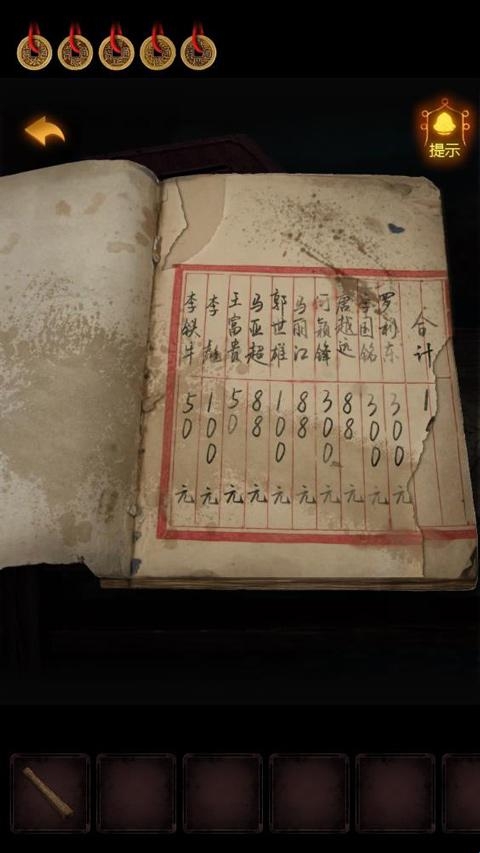 提示
李铁牛 50元
李彪 100元
王富贵 50元
马亚超 88元
郭世雄 100元
马丽江 88元
何颖锋 300元
越远 88元
国铭 300元
罗东 300元
合计 1